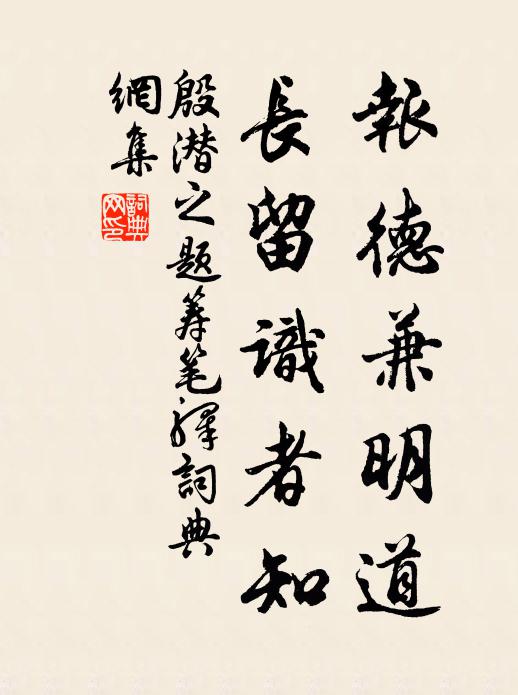 報德兼明道
長留識者知
殷潜之题筹笔驛詞典
網集
詞典
网印